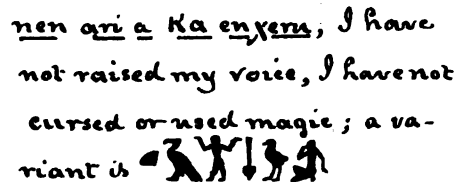 nen ari a ka enχeru, I have
not raised my voice, I have not
cursed or used magic; a va-
riant is